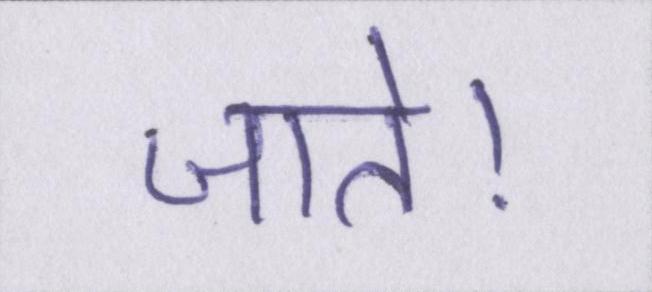 जाते!